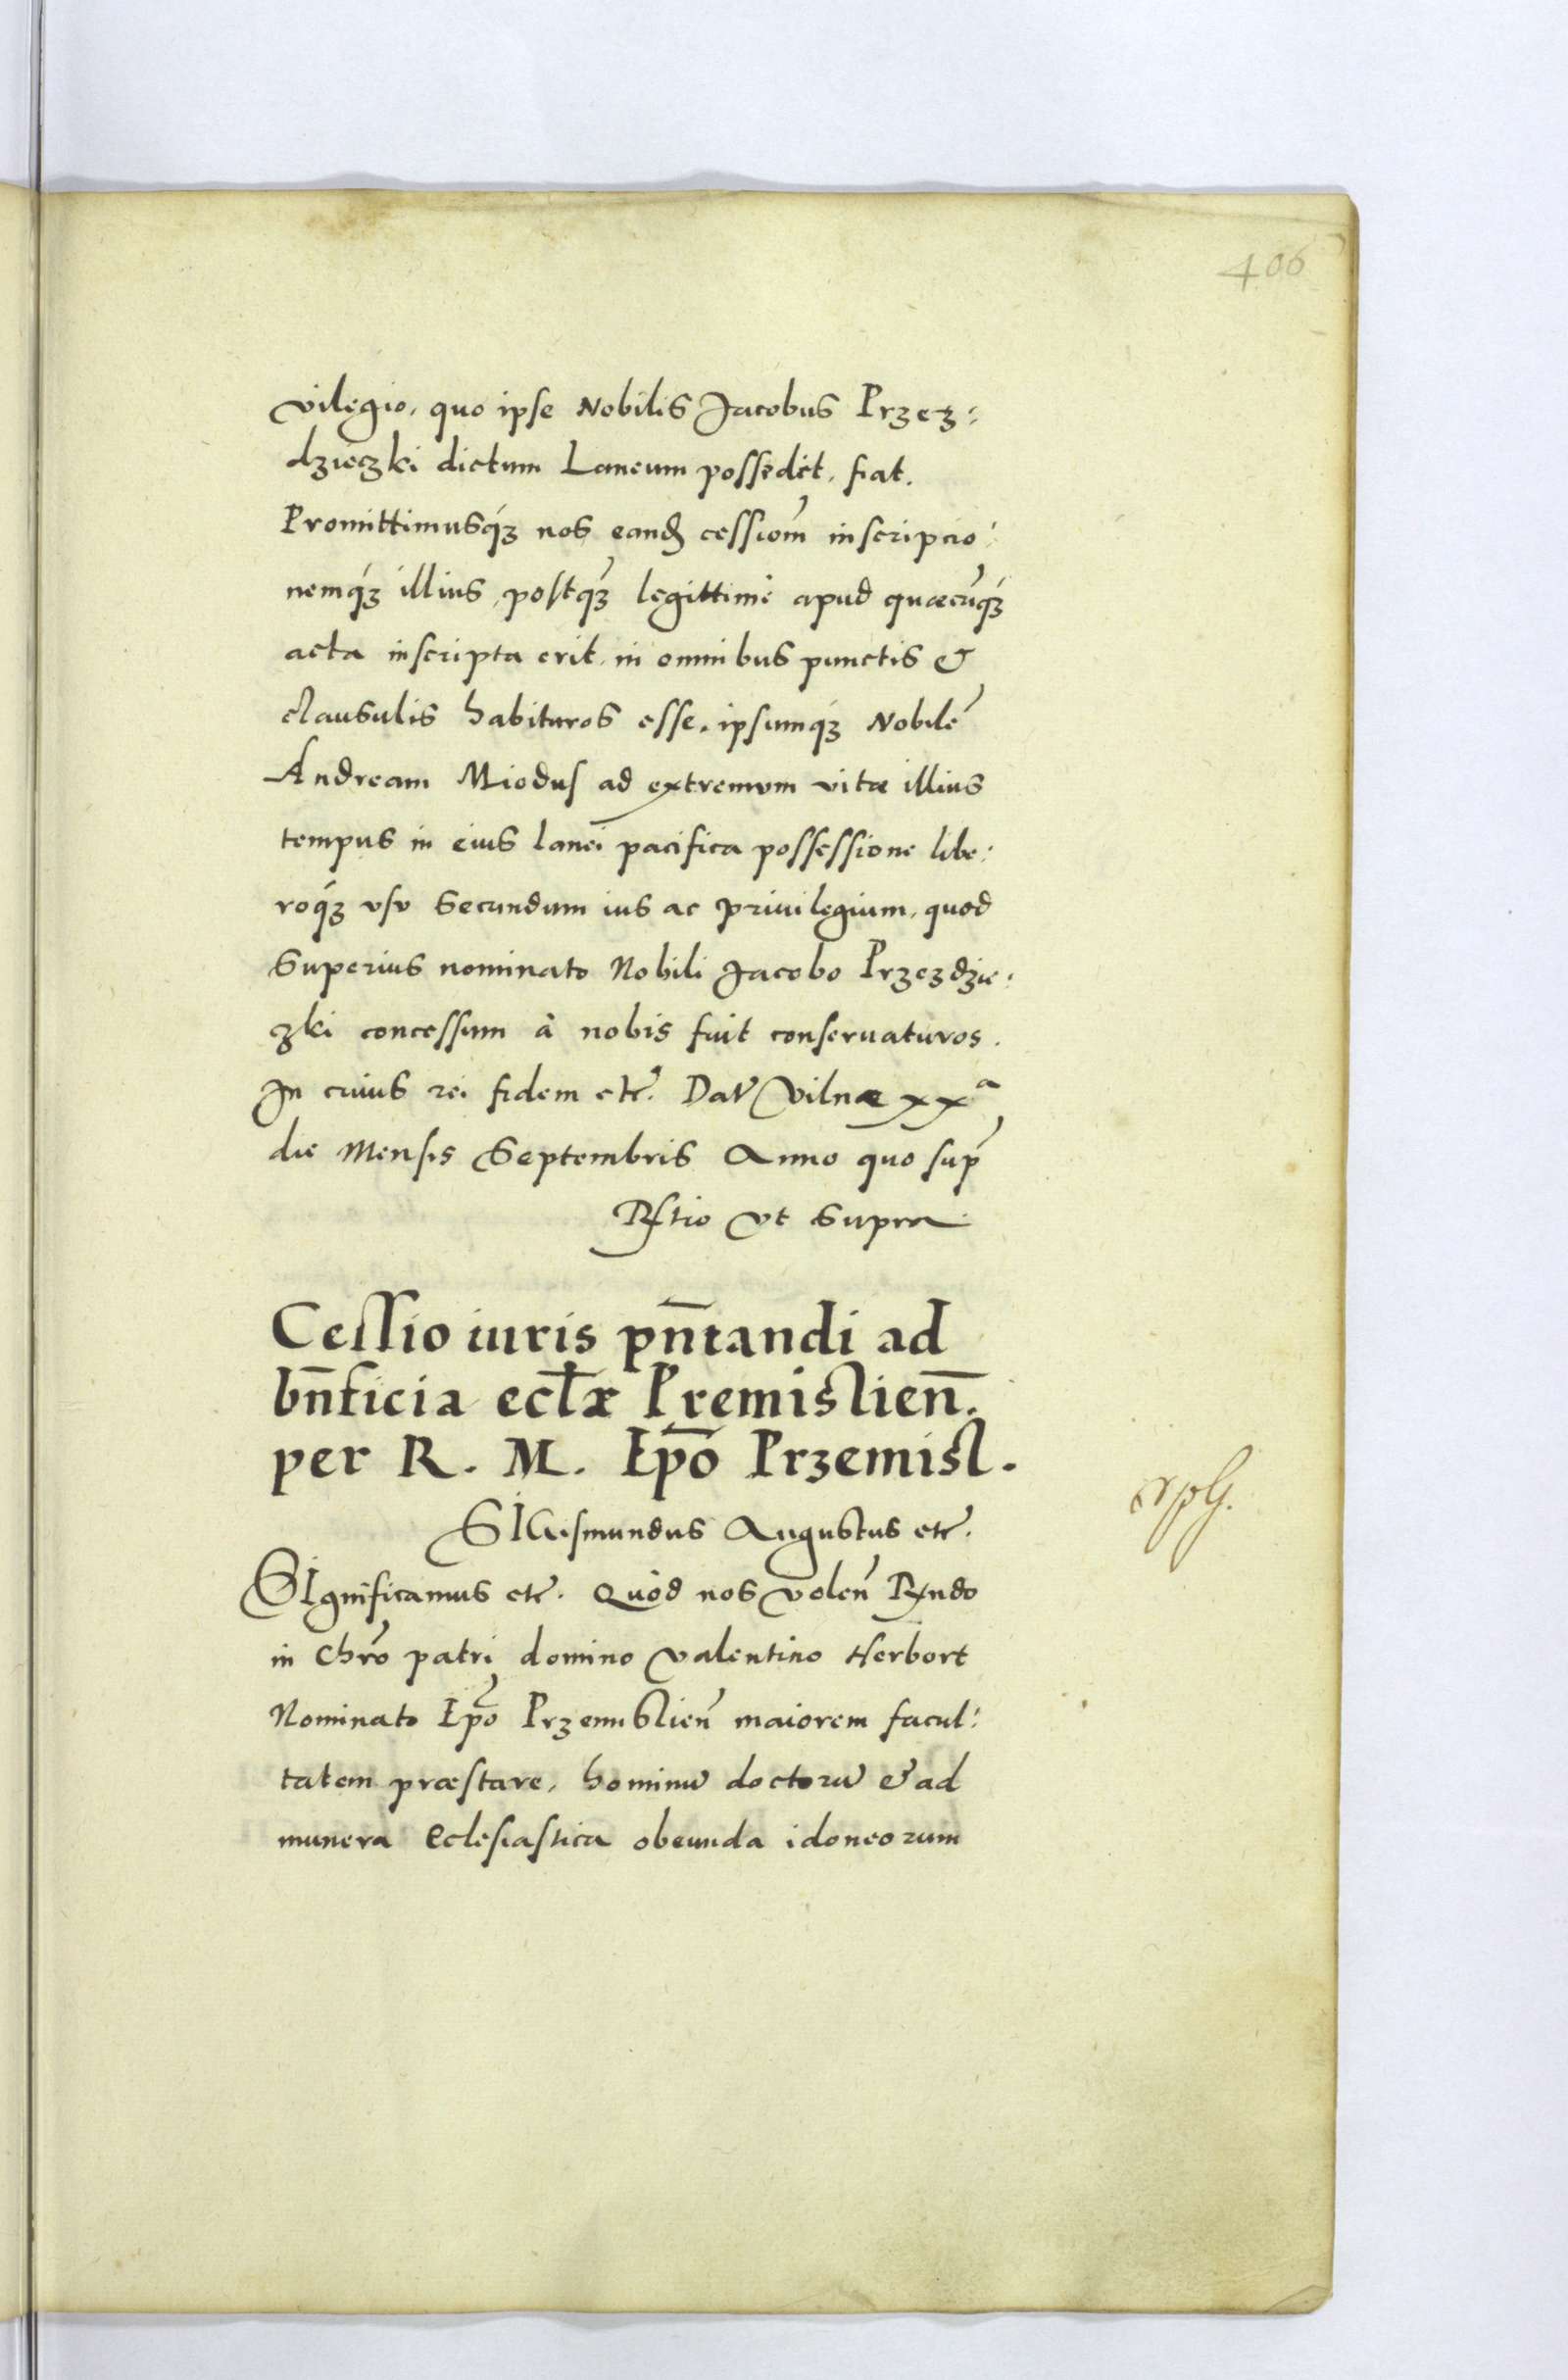 406
vilegio, quo ipse Nobilis Jacobus Przez:
dzieczki dictum Laneum possedit, fiat.
Promittimusq́ꝫ nos eanđ cessiom̃ inscripcio:
nemq́ꝫ illius, postq̃ꝫ legittimè apud quæcũq́ꝫ
acta inscripta erit, in omnibus punctis &
clausulis habituros esse, ipsumq́ꝫ Nobilẽ
Andream Miodus ad extremum vitæ illius
tempus in eius lanei pacifica possessione libe:
roq́ꝫ vsv secundum ius ac priuilegium, quod
superius nominato Nobili Jacobo Przezdzie:
czki concessum à nobis fuit conseruaturos.
In cuius rei fidem etc̃. Dat̃ Vilnæ xxᵃ
die Mensis Septembris Anno quo sup̃
Rl̃tio vt supra
Cessio iuris pñtandi ad
bñficia ecl̃æ Premislieñ.
per R. M. Ep̃o Przemisl.
SIGismundus Augustus etc̃.
SIgnificamus etc̃. Quòd nos volen̄ Rñdo
in Chr̃o patri domino Valentino Herbort
Nominato Ep̃o Przemislieñ maiorem facul:
tatem præstare, hominũ doctorũ & ad
munera Eclesiastica obeunda idoneorum